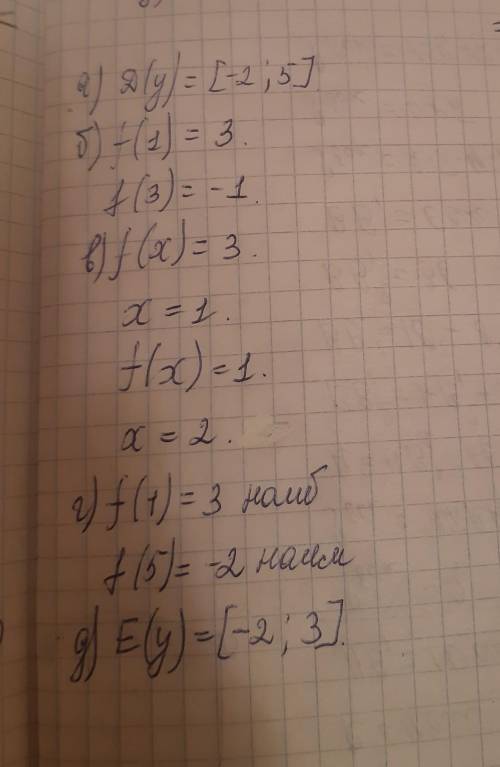 а) D(y) = [-2 ; 5]
б) f(1) = 3.
f(3) = -1.
в) f(x) = 3.
x = 1.
f(x) = 1.
x = 2.
г) f(1) = 3 наиб
f(5) = -2 наим
д) E(y) = [-2 ; 3].